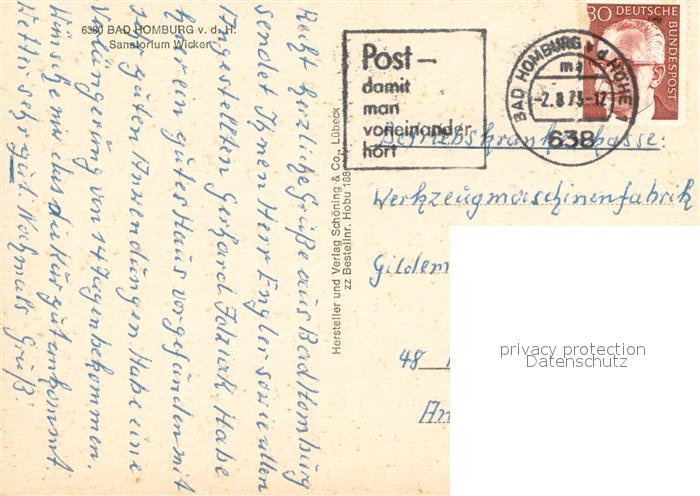 6380 BAD HOMBURG v. d. H.
Sanatorium Wicker
Recht herzliche Grüße aus Bad Homburg
sendet Ihnen Herr Engler sowie allen
Angestellten Gerhard Habe
hier ein gutes Haus vorgefunden mit
sehr guten Anwendungen Habe eine
Verlängerung von 14 Tagen bekommen.
Hünsche mir das die Kur gut ankommt
Wetter sehr gut. Nochmals Grüß.
Hersteller und Verlag Schöning & Co., Lübeck
zz Bestellnr. Hobu 188
Post –
damit
man
voneinander
hört
BAD HOMBURG v. d. HÖHE
ma
-2.8.73-17
638
30 DEUTSCHE BUNDESPOST
Betriebskrankenkasse:
Werkzeugmaschinenfabrik
Gildem
48
An
privacy protection
Datenschutz